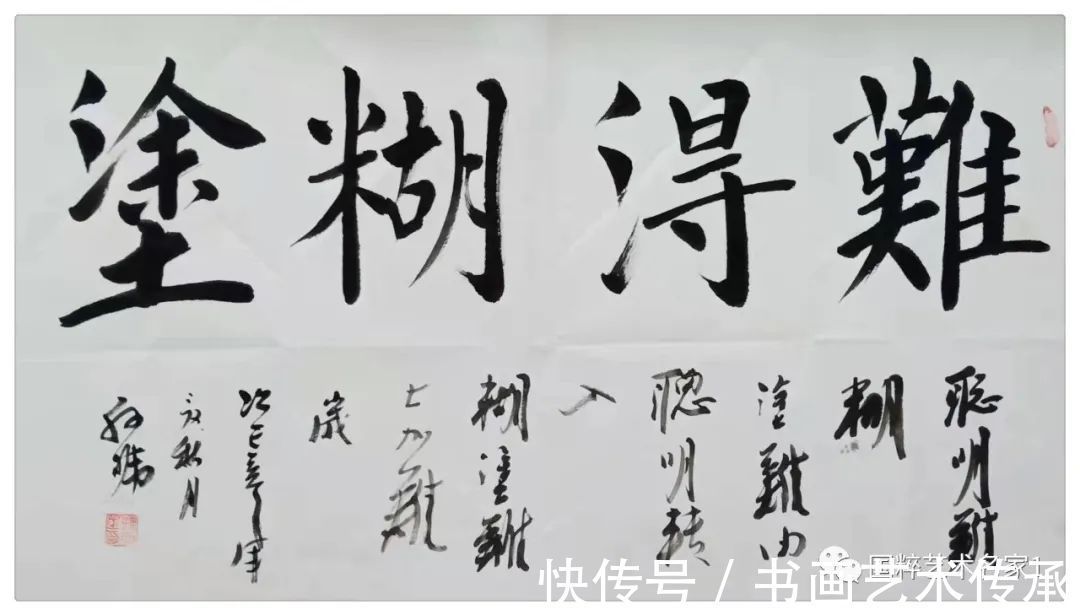 難得糊塗
聰明難
糊
塗難由
聰明轉
入
糊塗難
七
難
歲
月
国粹艺术名家1
快传号 / 书画艺术传承